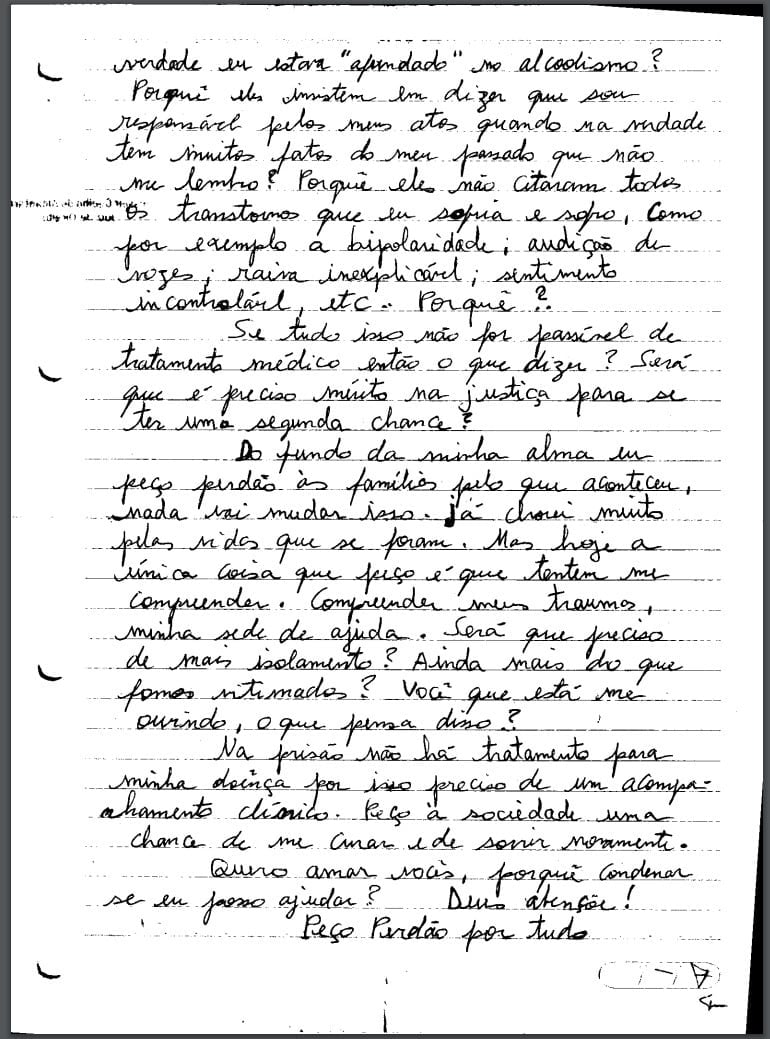 verdade eu estava "afundado" no alcoolismo?
Porquê eles insistem em dizer que sou
responsável pelos meus atos quando na verdade
tem muitos fatos do meu passado que não
me lembro? Porquê eles não citaram todos
os transtornos que eu sofria e sofro, como
por exemplo a bipolaridade; audição de
vozes; raiva inexplicável; sentimento
incontrolável, etc.. Porquê?
Se tudo isso não for passível de
tratamento médico então o que dizer? Será
que é preciso mérito na justiça para se
ter uma segunda chance?
Do fundo da minha alma eu
peço perdão às famílias pelo que aconteceu,
nada vai mudar isso. Já chorei muito
pelas vidas que se foram. Mas hoje a
única coisa que peço é que tentem me
compreender. Compreender meus traumas,
minha sede de ajuda. Será que preciso
de mais isolamento? Ainda mais do que
fomos vitimados? Você que está me
ouvindo, o que pensa disso?
Na prisão não há tratamento para
minha doença por isso preciso de um acompa-
nhamento clínico. Peço à sociedade uma
chance de me curar e de sorrir novamente.
Quero amar vocês, porquê condenar
se eu posso ajudar? Deus
Peço Perdão por tudo